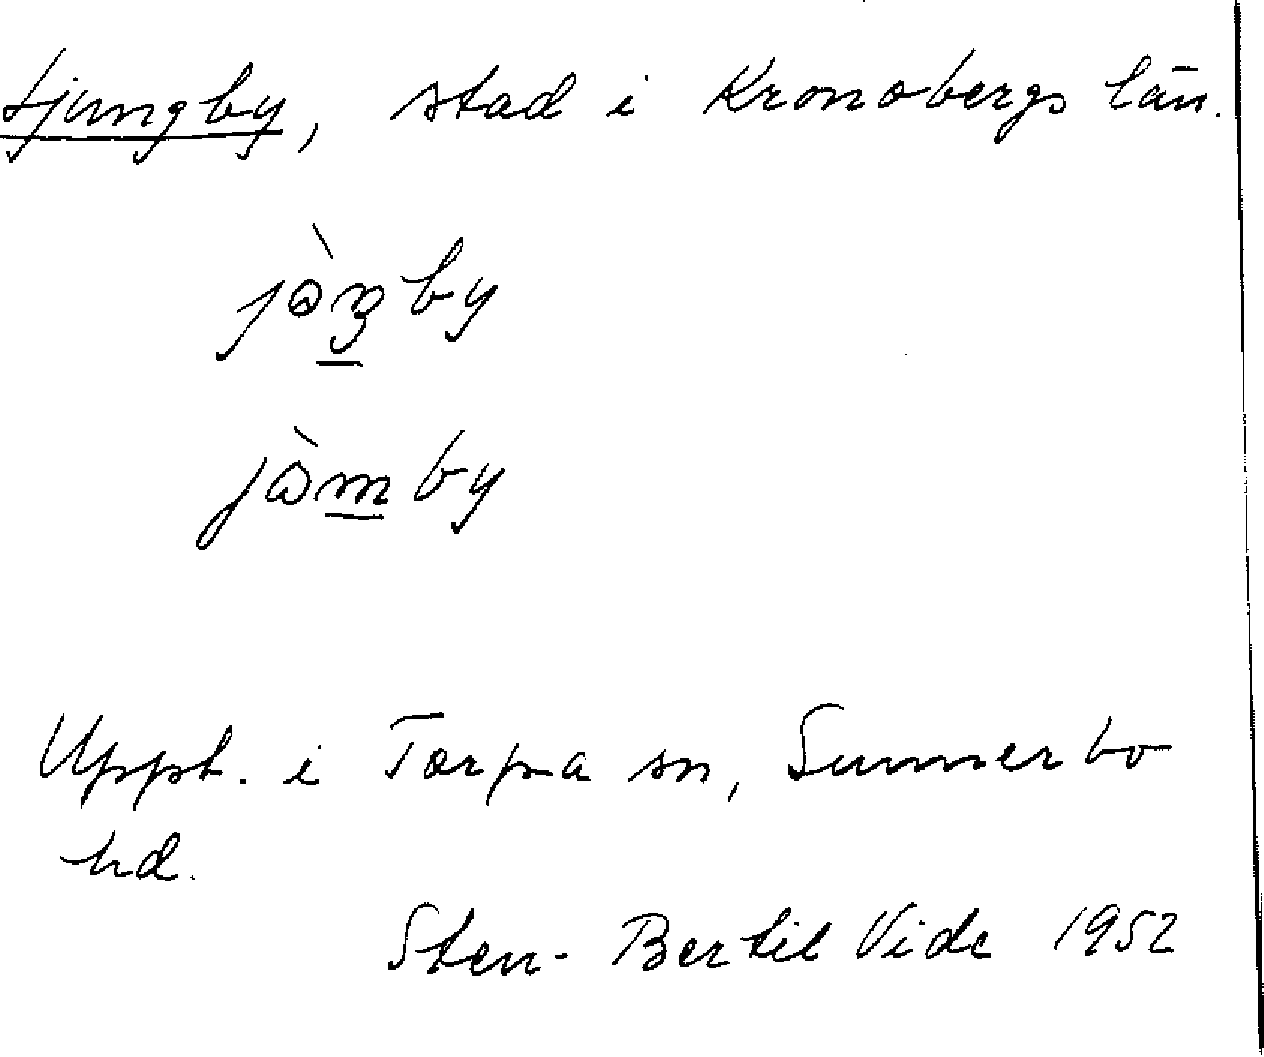 Ljungby, stad i Kronobergs län.
jòŋby
jòmby
Uppt. i Torpa sn, Sunnerbo
hd.
Sten-Bertil Vide 1952